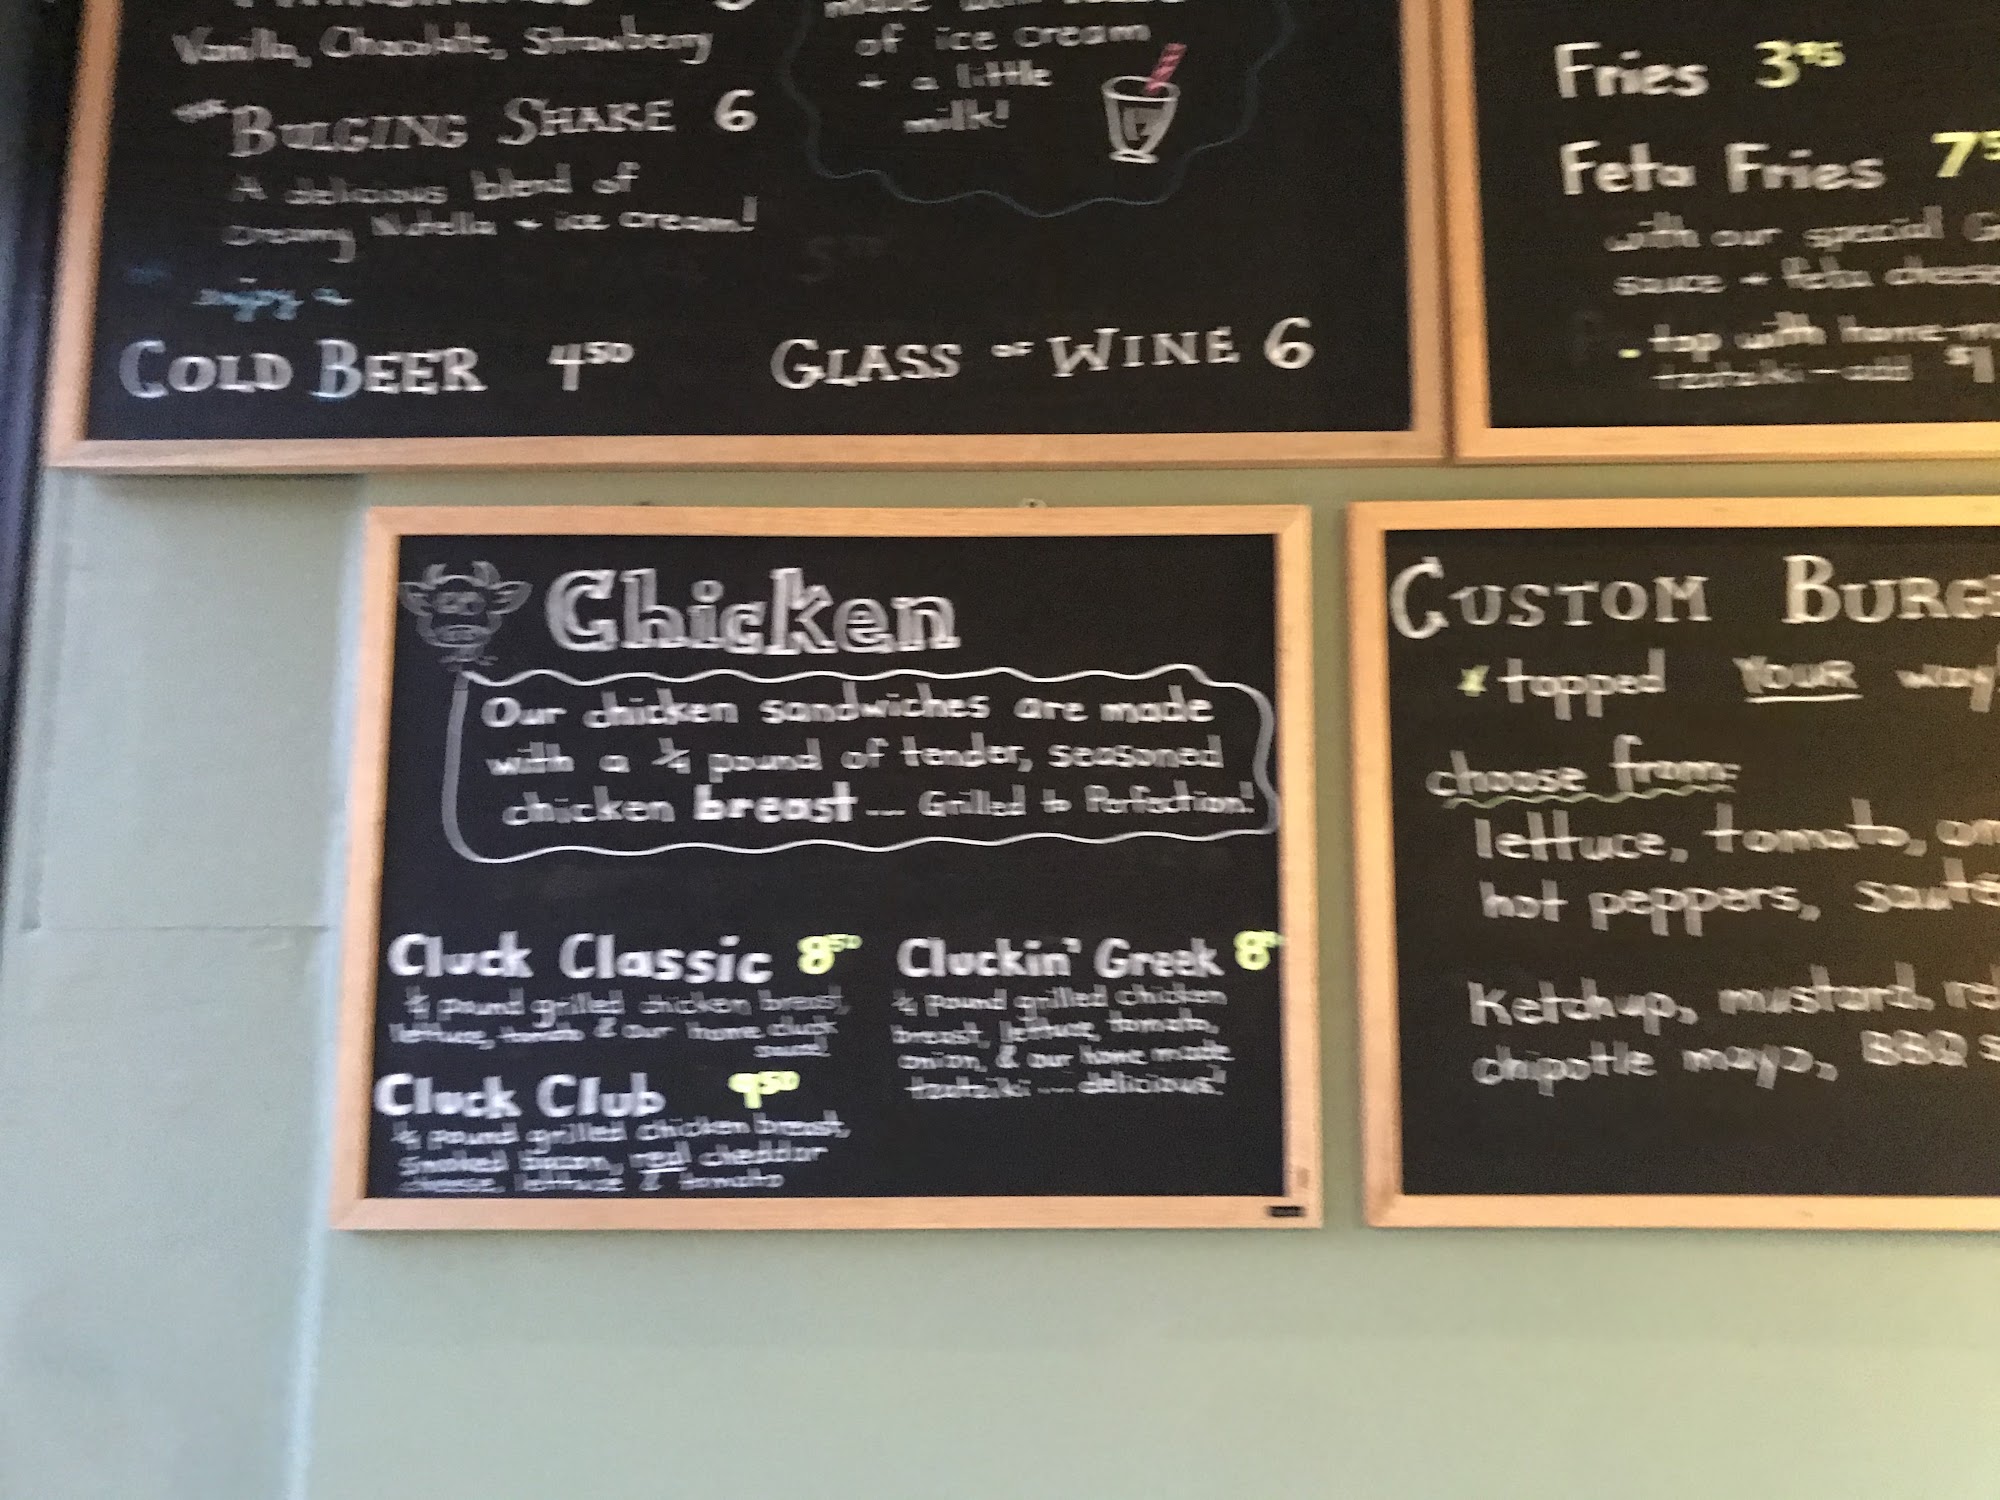 Vanilla, Chocolate, Strawberry
THE BULGING SHAKE 6
A delicious blend of
creamy Nutella + ice cream!
enjoy a
COLD BEER 4⁵⁰
of ice cream
+ a little
milk!
GLASS OF WINE 6
Fries 3⁹⁵
Feta Fries 7⁵
with our special G
sauce + feta cheese
- top with home-m
tzatziki - add $1
Chicken
Our chicken sandwiches are made
with a ¼ pound of tender, seasoned
chicken breast ... Grilled to Perfection!
Cluck Classic 8⁵⁰
¼ pound grilled chicken breast,
lettuce, tomato & our home cluck
sauce!
Cluck Club 9⁵⁰
¼ pound grilled chicken breast,
smoked bacon, real cheddar
cheese, lettuce & tomato
Cluckin' Greek 8
¼ pound grilled chicken
breast, lettuce, tomato,
onion, & our home made
tzatziki ... delicious!
CUSTOM BURG
* topped YOUR way!
choose from:
lettuce, tomato, on
hot peppers, saute
Ketchup, mustard, rel
chipotle mayo, BBQ s